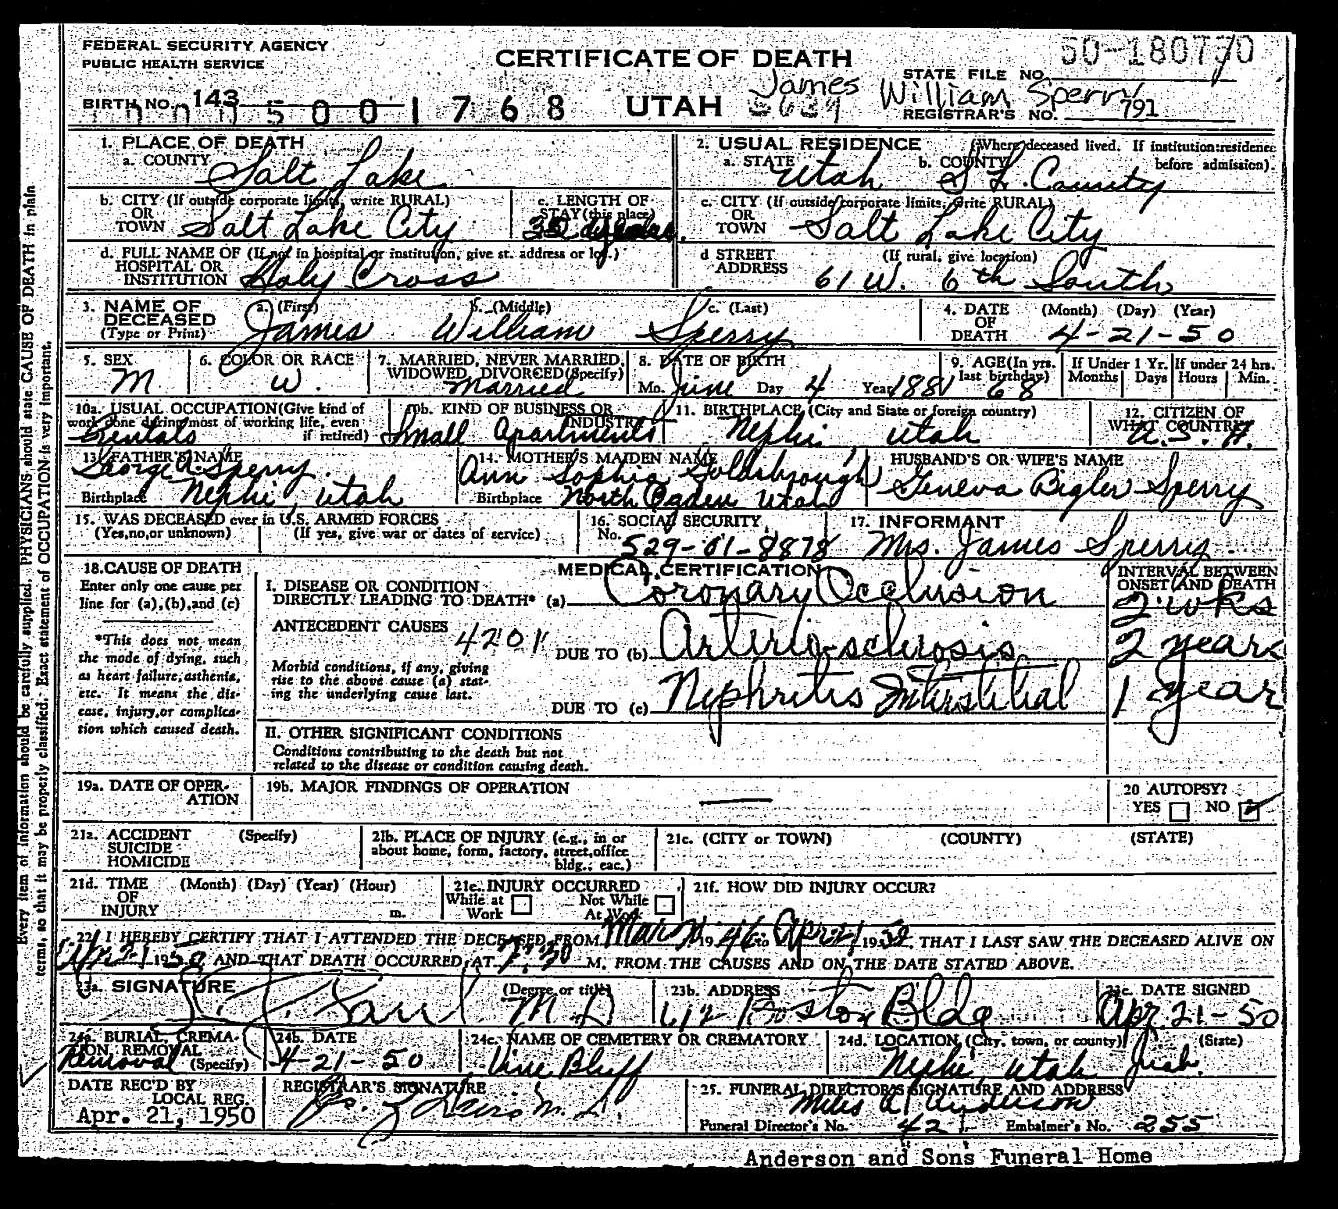 FEDERAL SECURITY AGENCY
PUBLIC HEALTH SERVICE
CERTIFICATE OF DEATH
UTAH
50-180770
STATE FILE NO.
James William Sperry
BIRTH NO. 143
500 1768
REGISTRAR'S NO. 791
1. PLACE OF DEATH
a. COUNTY Salt Lake
2. USUAL RESIDENCE (Where deceased lived. If institution:residence before admission).
a. STATE Utah b. COUNTY S L. County
b. CITY (If outside corporate limits, write RURAL) OR TOWN Salt Lake City
c. LENGTH OF STAY (this place)
c. CITY (If outside corporate limits, write RURAL) OR TOWN Salt Lake City
d. FULL NAME OF (If not in hospital or institution, give st. address or loc.) HOSPITAL OR INSTITUTION Holy Cross
d STREET ADDRESS (If rural, give location) 61 W. 6th South
3. NAME OF DECEASED (Type or Print) a. (First) James b. (Middle) William c. (Last) Sperry
4. DATE OF DEATH (Month) (Day) (Year) 4-21-50
5. SEX M
6. COLOR OR RACE W
7. MARRIED, NEVER MARRIED, WIDOWED, DIVORCED (Specify) Married
8. DATE OF BIRTH Mo. June Day 4 Year 1881
9. AGE (In yrs. last birthday) 68
If Under 1 Yr. Months Days
If under 24 hrs. Hours Min.
10a. USUAL OCCUPATION (Give kind of work done during most of working life, even if retired) Rentals
10b. KIND OF BUSINESS OR INDUSTRY Small Apartments
11. BIRTHPLACE (City and State or foreign country) Nephi, Utah
12. CITIZEN OF WHAT COUNTRY U.S.A.
13. FATHER'S NAME George A Sperry
Birthplace Nephi, Utah
14. MOTHER'S MAIDEN NAME Ann Sophia Goldsbrough
Birthplace North Ogden Utah
HUSBAND'S OR WIFE'S NAME
Geneva Bigler Sperry
15. WAS DECEASED ever in U.S. ARMED FORCES
(Yes,no,or unknown) (If yes, give war or dates of service)
16. SOCIAL SECURITY No. 529-01-8878
17. INFORMANT Mrs. James Sperry
18. CAUSE OF DEATH
Enter only one cause per line for (a),(b),and (c)
*This does not mean the mode of dying, such as heart failure, asthenia, etc. It means the disease, injury, or complication which caused death.
MEDICAL CERTIFICATION
INTERVAL BETWEEN ONSET AND DEATH
I. DISEASE OR CONDITION DIRECTLY LEADING TO DEATH* (a) Coronary Occlusion 2 wks
ANTECEDENT CAUSES 4201
DUE TO (b) Arterio-sclerosis 2 years
Morbid conditions, if any, giving rise to the above cause (a) stating the underlying cause last.
DUE TO (c) Nephritis Interstitial 1 year
II. OTHER SIGNIFICANT CONDITIONS
Conditions contributing to the death but not related to the disease or condition causing death.
19a. DATE OF OPERATION
19b. MAJOR FINDINGS OF OPERATION
20 AUTOPSY?
YES NO
21a. ACCIDENT SUICIDE HOMICIDE (Specify)
21b. PLACE OF INJURY (e.g., in or about home, form, factory, street,office bldg., eac.)
21c. (CITY or TOWN) (COUNTY) (STATE)
21d. TIME OF INJURY (Month) (Day) (Year) (Hour) m.
21e. INJURY OCCURRED
While at Work Not While At Work
21f. HOW DID INJURY OCCUR?
22. I HEREBY CERTIFY THAT I ATTENDED THE DECEASED FROM Mar 1946 to Apr 21 1950, THAT I LAST SAW THE DECEASED ALIVE ON
Apr 21 1950 AND THAT DEATH OCCURRED AT 7:30 M. FROM THE CAUSES AND ON THE DATE STATED ABOVE.
23a. SIGNATURE (Degree or title) M.D.
23b. ADDRESS 612 Boston Bldg
23c. DATE SIGNED Apr 21-50
24a. BURIAL, CREMATION, REMOVAL (Specify) Removal
24b. DATE 4-21-50
24c. NAME OF CEMETERY OR CREMATORY Vine Bluff
24d. LOCATION (City, town, or county) (State) Nephi Utah Juab.
DATE REC'D BY LOCAL REG. Apr. 21, 1950
REGISTRAR'S SIGNATURE
25. FUNERAL DIRECTOR'S SIGNATURE AND ADDRESS
Miles A Anderson
Funeral Director's No. 421 Embalmer's No. 255
Anderson and Sons Funeral Home
Every item of information should be carefully supplied. PHYSICIANS should state CAUSE OF DEATH in plain
terms, so that it may be properly classified. Exact statement of OCCUPATION is very important.